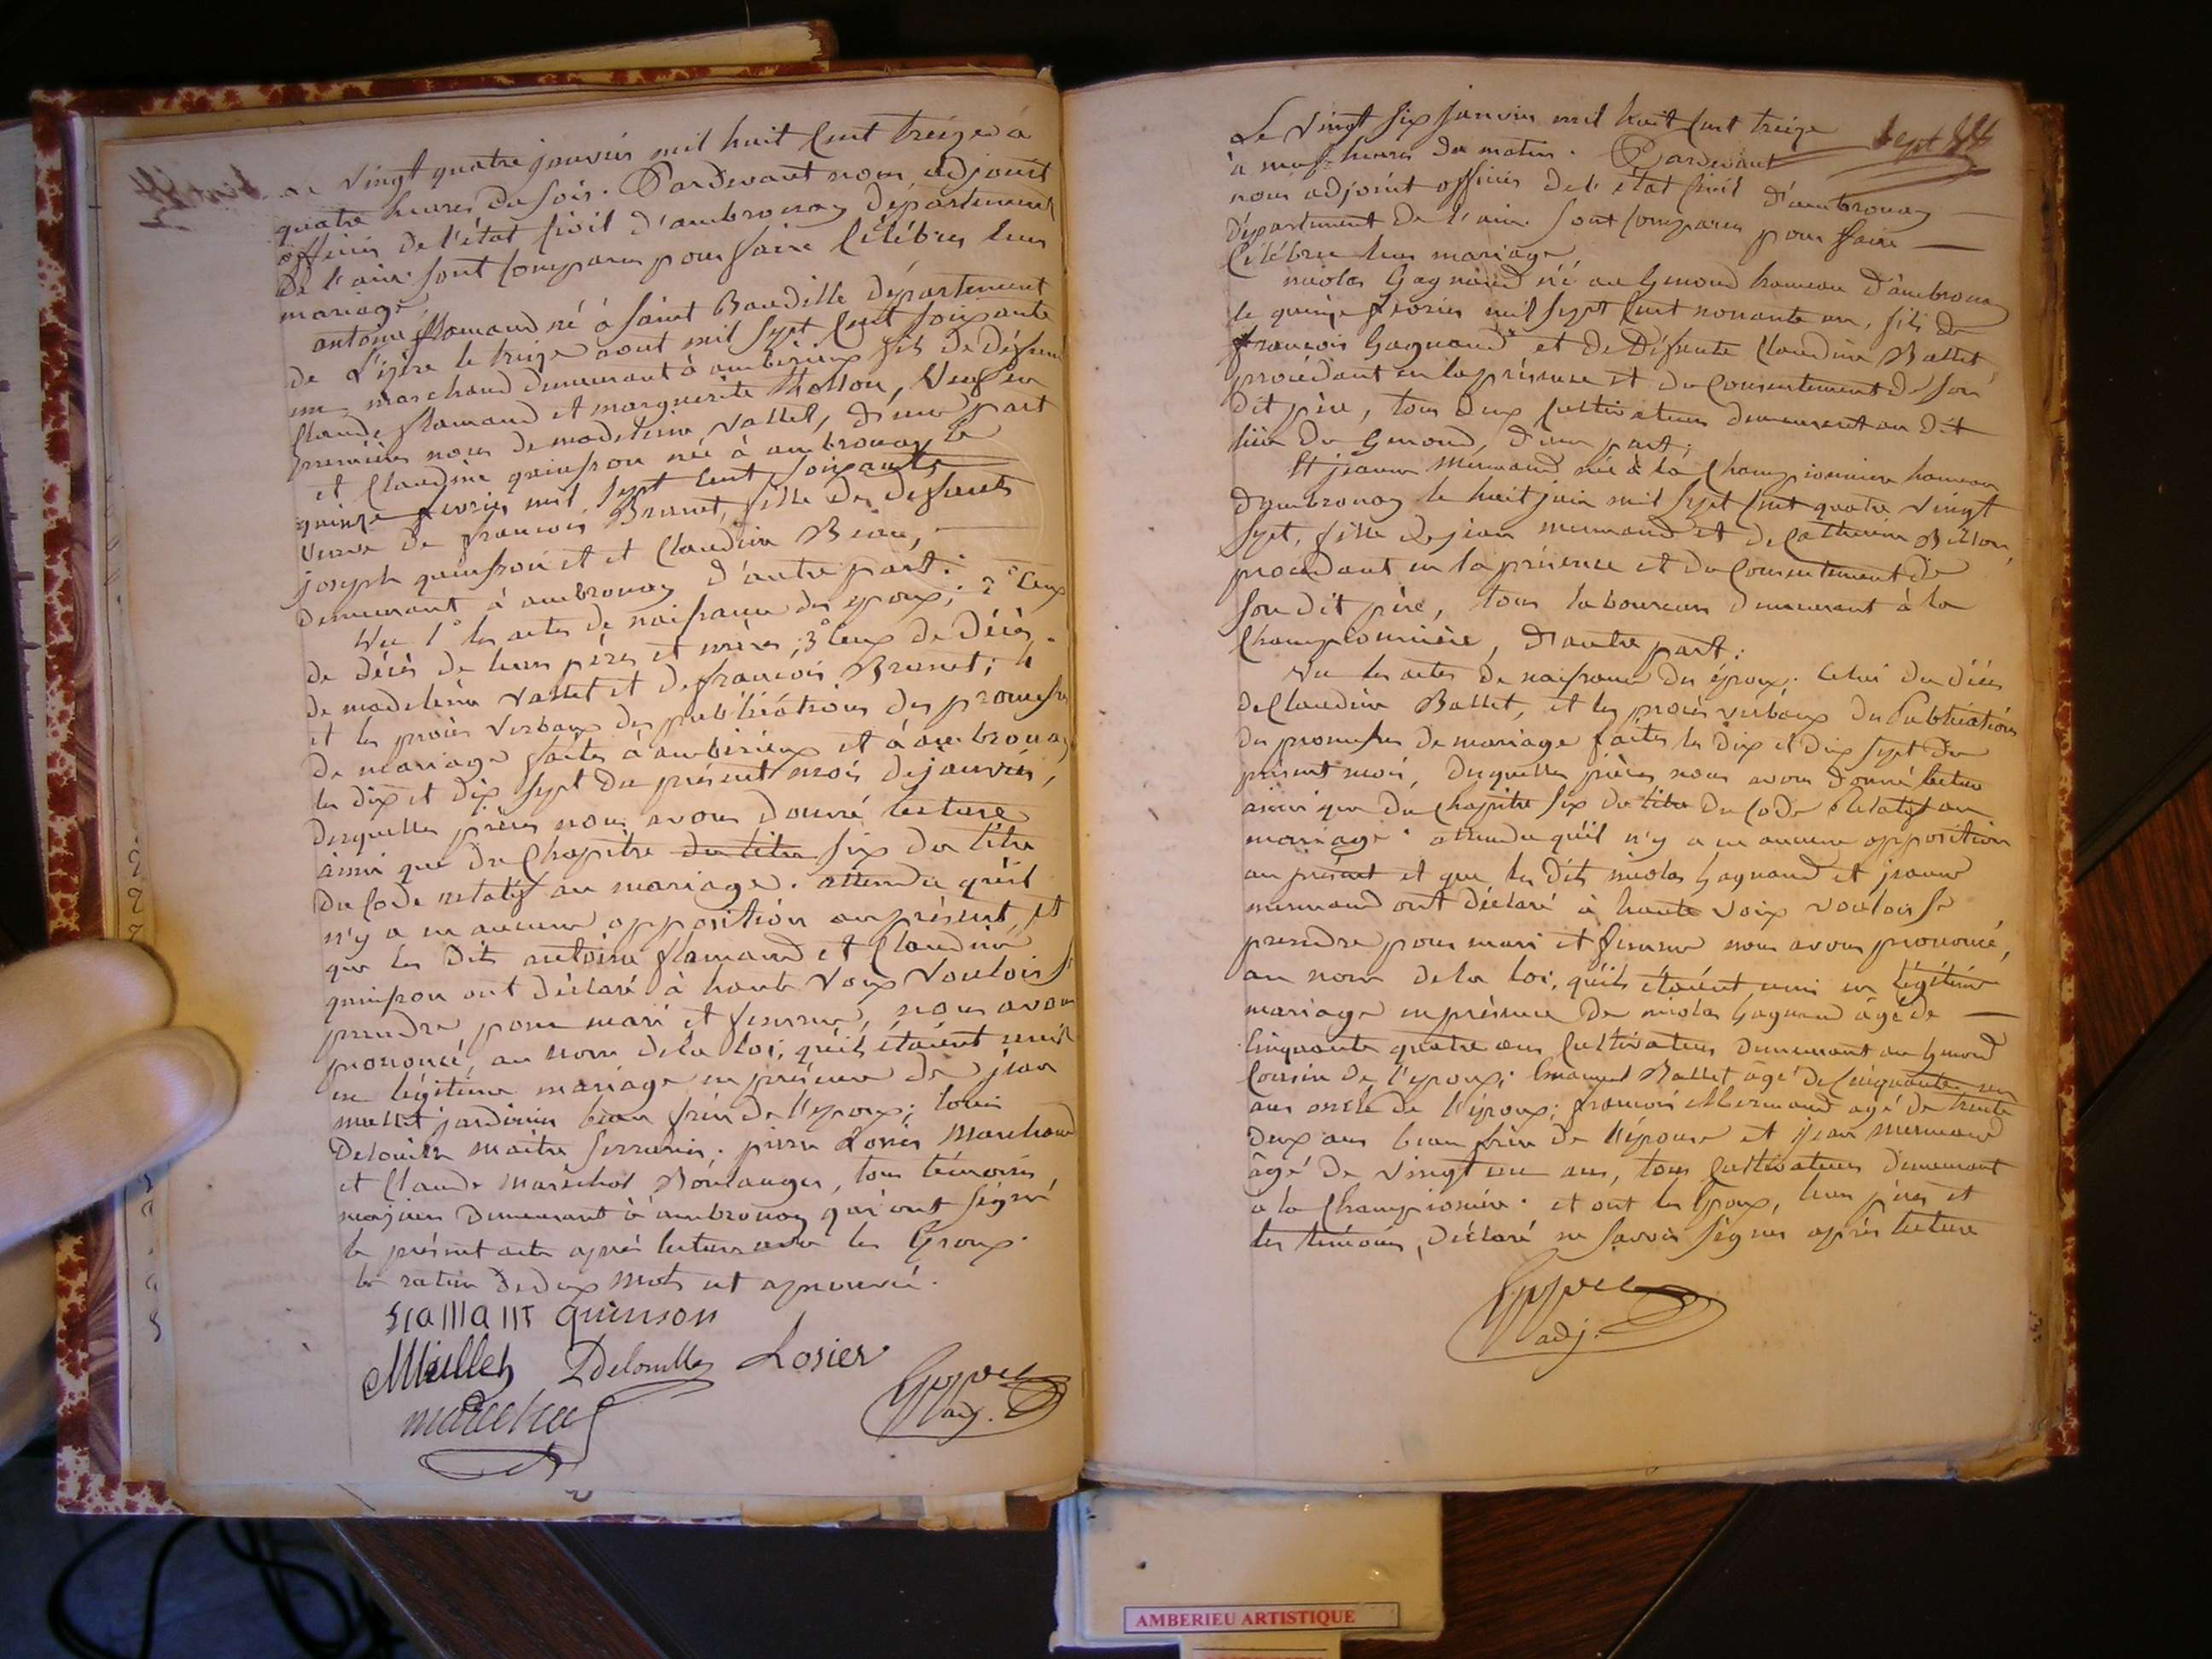 Le vingt quatre janvier mil huit cent treize à
quatre heures du soir. Pardevant nous adjoint
officier de l'état civil d'ambronay département
de l'ain. sont comparus pour faire célébrer leur
mariage,
antoine flamand né à saint Baudille département
de L'isère le treize aout mil sept cent soixante
un marchand demeurant à ambérieux fils de défunts
Claude flamand et marguerite, veuf en
premières noces de madeleine vallet, d'une part
et Claudine quinsson née à ambronay le
quinze fevrier mil sept cent soixante
veuve de francois Brunet, fille de defunts
joseph quinsson et et Claudine
demeurant à ambronay d'autre part.
Vu 1° les actes de naissance des epoux; 2° Ceux
de décès de leurs pères et mères; 3° Ceux de décès
de madeleine vallet et de francois Brunet; 4
et les procès verbaux des publications des promesses
de mariage faites à ambérieux et à ambronay
les dix et dix sept du présent mois de janvier,
desquelles pièces nous avons donné lecture
ainsi que du Chapitre du titre six du titre
du Code relatif au mariage. attendu qu'il
n'y a eu aucune opposition au présent, et
que les dits antoine flamand et Claudine
quinsson ont déclaré à haute voix vouloir se
prendre pour mari et femme, nous avons
prononcé, au nom de la loi, qu'ils étaient unis
en légitime mariage en présence de jean
mullet jardinier beau frère de l'epoux; louis
Delouille maitre serrurier. pierre Losier Marchand
et Claude maréchal Boulanger, tous témoins
majeurs demeurant à ambronay qui ont signé
le présent acte après lecture avec les Epoux.
la rature de deux mots est approuvée.
flamant quinson
Mullet Delouille Losier
marechal
adj.
Sept
Le Vingt six janvier mil huit cent treize
à neuf heures du matin. Pardevant
nous adjoint officier de l'état civil d'ambronay
département de l'ain. sont comparus pour faire
Célébrer leur mariage,
nicolas Gagnaud né au Genoud hameau d'ambronay
le quinze fevrier mil sept cent nonante un, fils de
francois Gagnaud et de défunte Claudine Ballet
procédant en la présence et du Consentement de son
dit père, tous deux cultivateurs demeurant au dit
lieu du Genoud, d'une part;
Et jeanne mermand née à la Championniere hameau
d'ambronay le huit juin mil sept cent quatre vingt
sept, fille de jean mermand et de Catherine Billon,
procédant en la présence et du Consentement de
son dit père, tous laboureurs demeurant à la
Championnière, d'autre part.
Vu les actes de naissance des époux. Celui du décès
de Claudine Ballet, et les procès verbaux des Publications
des promesses de mariage faites les dix et dix sept du
présent mois, desquelles pièces nous avons donné lecture
ainsi que du Chapitre six du titre du Code Relatif au
mariage. attendu qu'il n'y a eu aucune opposition
au présent et que les dits nicolas Gagnaud et jeanne
mermand ont déclaré à haute voix vouloir se
prendre pour mari et femme nous avons prononcé,
au nom de la loi, qu'ils étaient unis en légitime
mariage en présence de nicolas Gagnaud âgé de
Cinquante quatre ans Cultivateur demeurant au Genoud
Cousin de l'epoux; Emanuel Ballet âgé de Cinquante un
ans oncle de l'époux; francois Mermand agé de trente
deux ans beau frère de l'épouse et jean mermand
âgé de vingt un ans, tous Cultivateurs demeurant
à la Championière. et ont les Epoux, leurs pères et
les témoins, déclaré ne savoir signer après lecture
adj.
AMBERIEU ARTISTIQUE